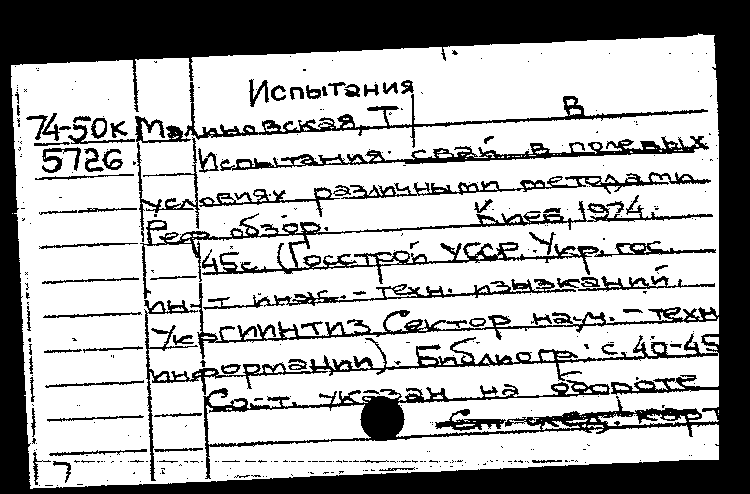 Испытания
74-50к Малиновская, Т В
5726 Испытания свай в полевых
условиях различными методами
Реф. обзор. Киев, 1974.
45с. (Госстрой УССР. Укр. гос.
ин-т инж.-техн. изысканий.
УкрГИИНТИЗ Сектор науч.-техн
информации). Библиогр: с. 40-45
Сост. указан на обороте
См. след. карт
7